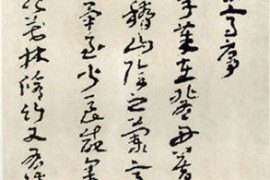 亭序
歲在癸丑暮
稽山陰之蘭亭
畢至少長咸集
茂林脩竹又有清